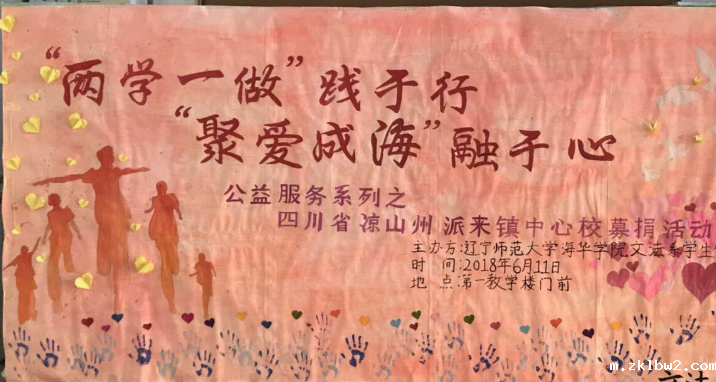 “两学一做”践于行
“聚爱成海”融于心
公益服务系列之
四川省凉山州派来镇中心校募捐活动
主办方:辽宁师范大学海华学院文法系学生
时 间:2018年6月11日
地 点:第一教学楼门前
m.zklbw2.com